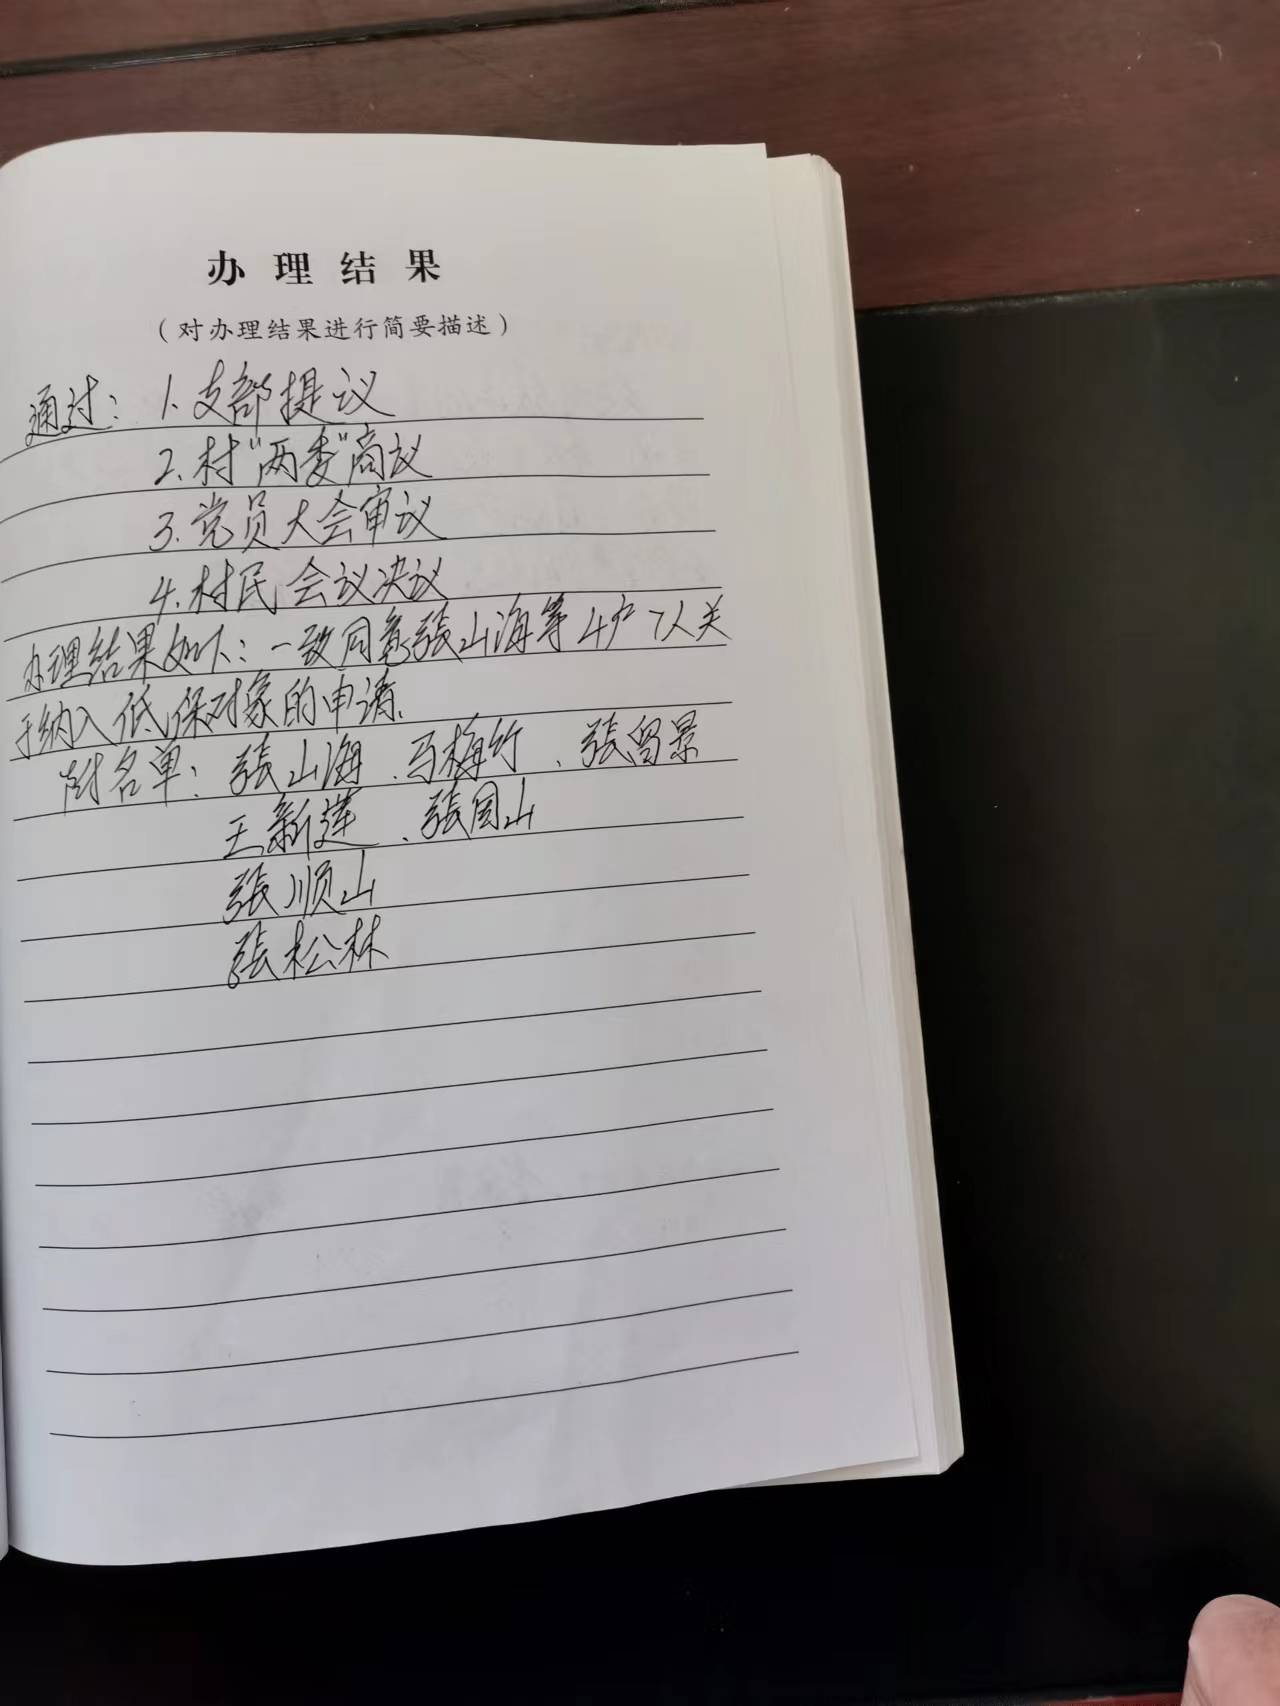 办理结果
（对办理结果进行简要描述）
通过：1.支部提议
2.村“两委”商议
3.党员大会审议
4.村民会议决议
办理结果如下：一致同意張山海等4户7人关
于纳入低保对象的申请.
附名单：張山海、马梅竹、張留景
王新莲、張国山
張顺山
張松林